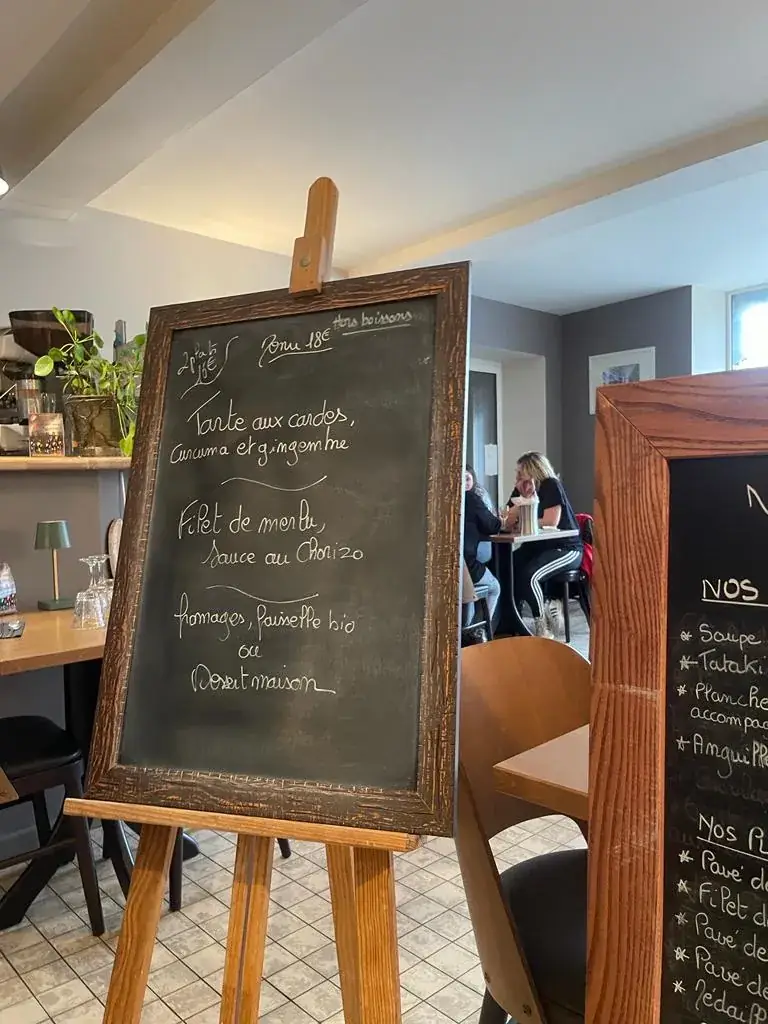 2 plats
15€
Menu 18€
Hors boissons
Tarte aux cardes,
Curcuma et gingembre
Filet de merlu,
Sauce au Chorizo
fromages, faisselle bio
ou
Dessert maison
NOS
* Soupe
* Tataki
* Planche
accompa
* Anguill
NOS PL
* Pavé de
* Filet d
* Pavé de
* Pavé de
* Médaill